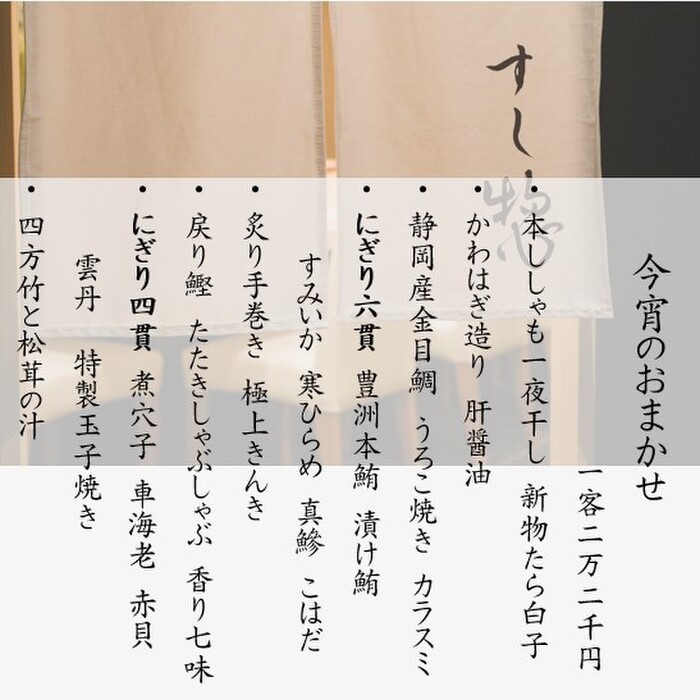 すし惣
今宵のおまかせ
一客二万二千円
・本ししゃも一夜干し 新物たら白子
・かわはぎ造り 肝醤油
・静岡産金目鯛 うろこ焼き カラスミ
・にぎり六貫 豊洲本鮪 漬け鮪
すみいか 寒ひらめ 真鯵 こはだ
・炙り手巻き 極上きんき
・戻り鰹 たたきしゃぶしゃぶ 香り七味
・にぎり四貫 煮穴子 車海老 赤貝
雲丹 特製玉子焼き
・四方竹と松茸の汁